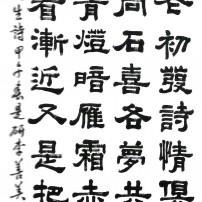 初發詩情俱
石喜各夢共
青燈暗雁霜赤
看漸近又是把
生詩甲午春是研李善美